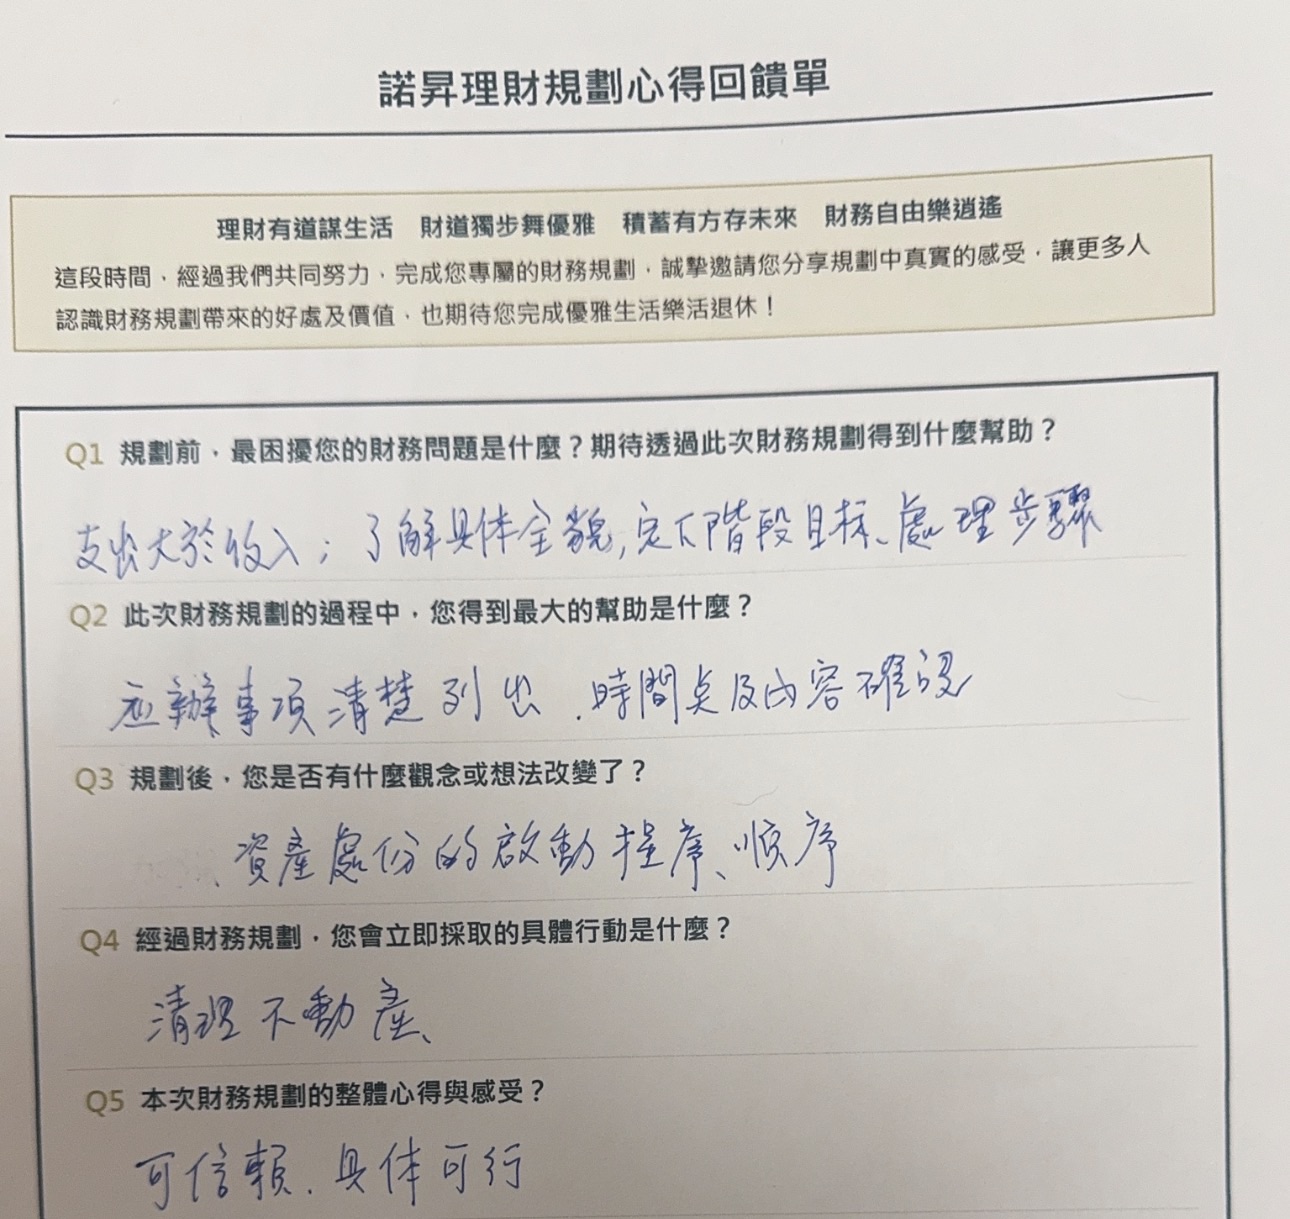 諾昇理財規劃心得回饋單
理財有道謀生活　財道獨步舞優雅　積蓄有方存未來　財務自由樂逍遙
這段時間，經過我們共同努力，完成您專屬的財務規劃，誠摯邀請您分享規劃中真實的感受，讓更多人
認識財務規劃帶來的好處及價值，也期待您完成優雅生活樂活退休！
Q1 規劃前，最困擾您的財務問題是什麼？期待透過此次財務規劃得到什麼幫助？
支出大於收入；了解具体全貌,定下階段目标、處理步驟
Q2 此次財務規劃的過程中，您得到最大的幫助是什麼？
应辦事項清楚列出、時間点及內容確認
Q3 規劃後，您是否有什麼觀念或想法改變了？
資產處份的啟動程序、順序
Q4 經過財務規劃，您會立即採取的具體行動是什麼？
清理不動產、
Q5 本次財務規劃的整體心得與感受？
可信賴、具体可行